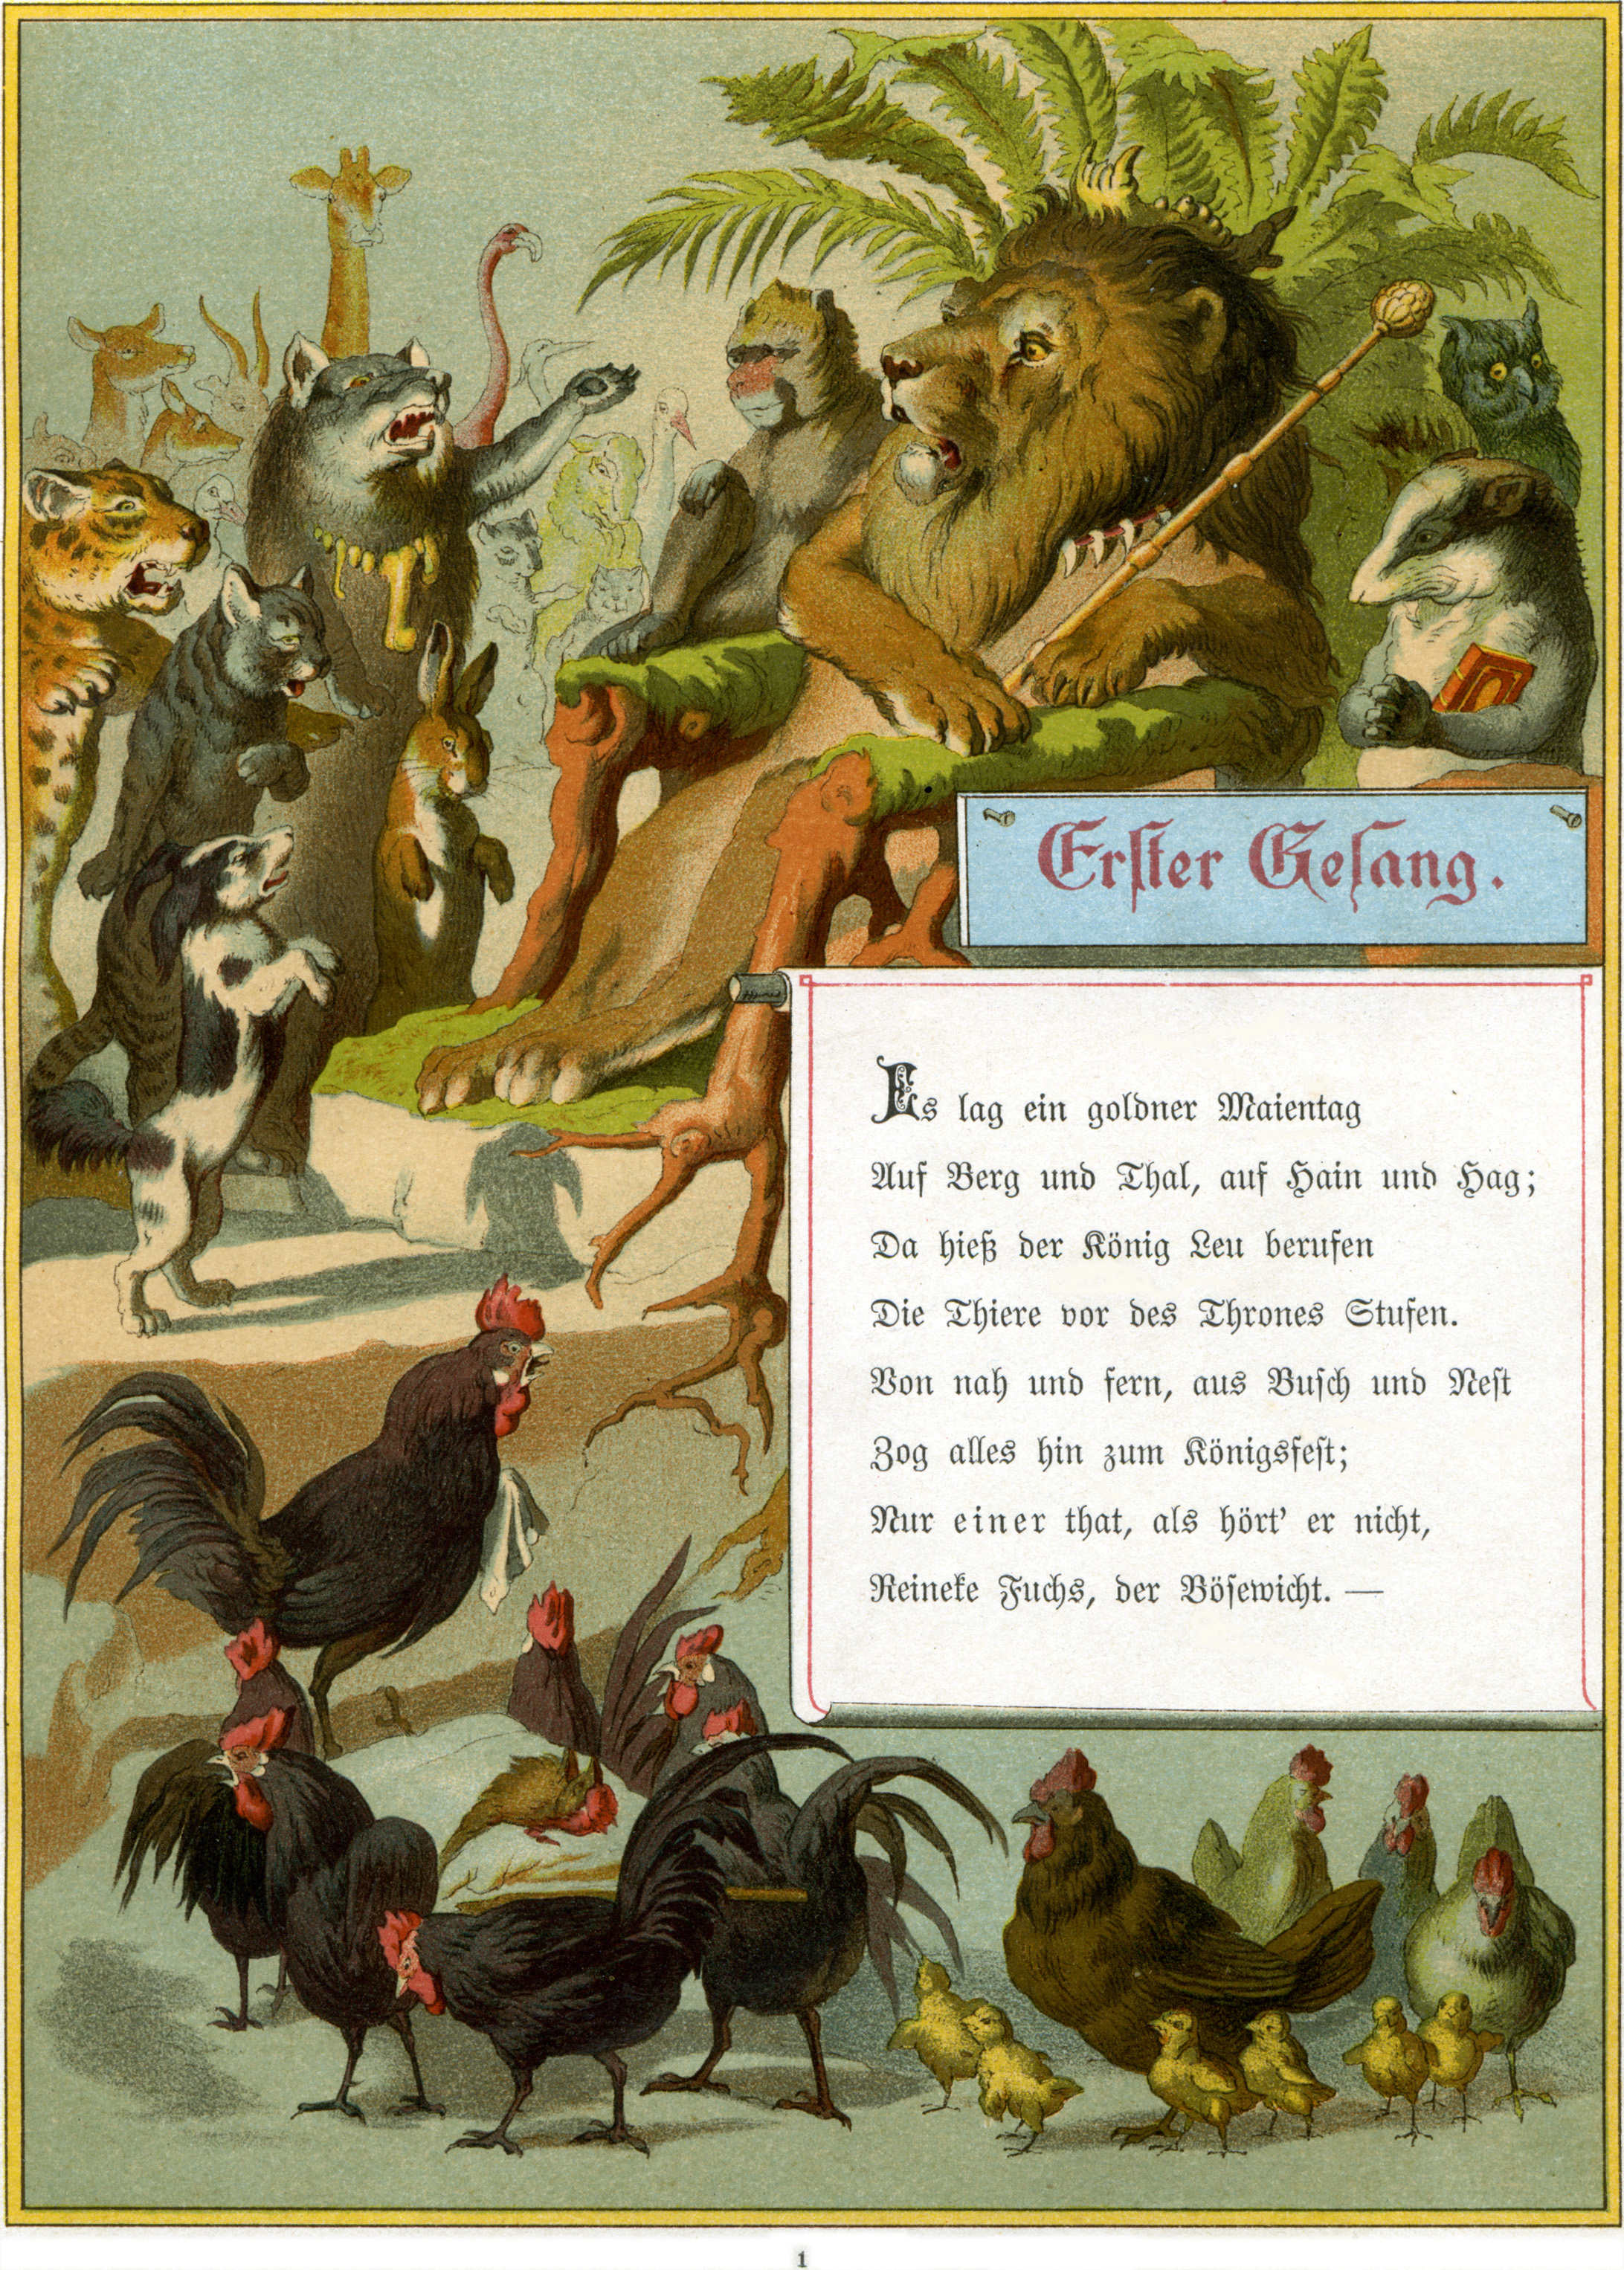 Erster Gesang.
Es lag ein goldner Maientag
Auf Berg und Thal, auf Hain und Hag;
Da hieß der König Leu berufen
Die Thiere vor des Thrones Stufen.
Von nah und fern, aus Busch und Nest
Zog alles hin zum Königsfest;
Nur einer that, als hört' er nicht,
Reineke Fuchs, der Bösewicht. —
1